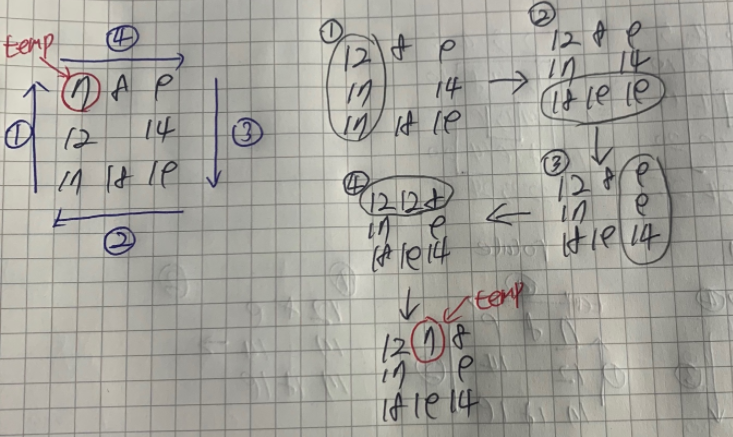 temp
④
7 8 9
① 12 14 ③
17 18 19
②
①
12 8 9
17 14
17 18 19
②
12 8 9
17 14
18 19 19
③
12 8 9
17 9
18 19 14
④
12 12 8
17 9
18 19 14
temp
12 7 8
17 9
18 19 14